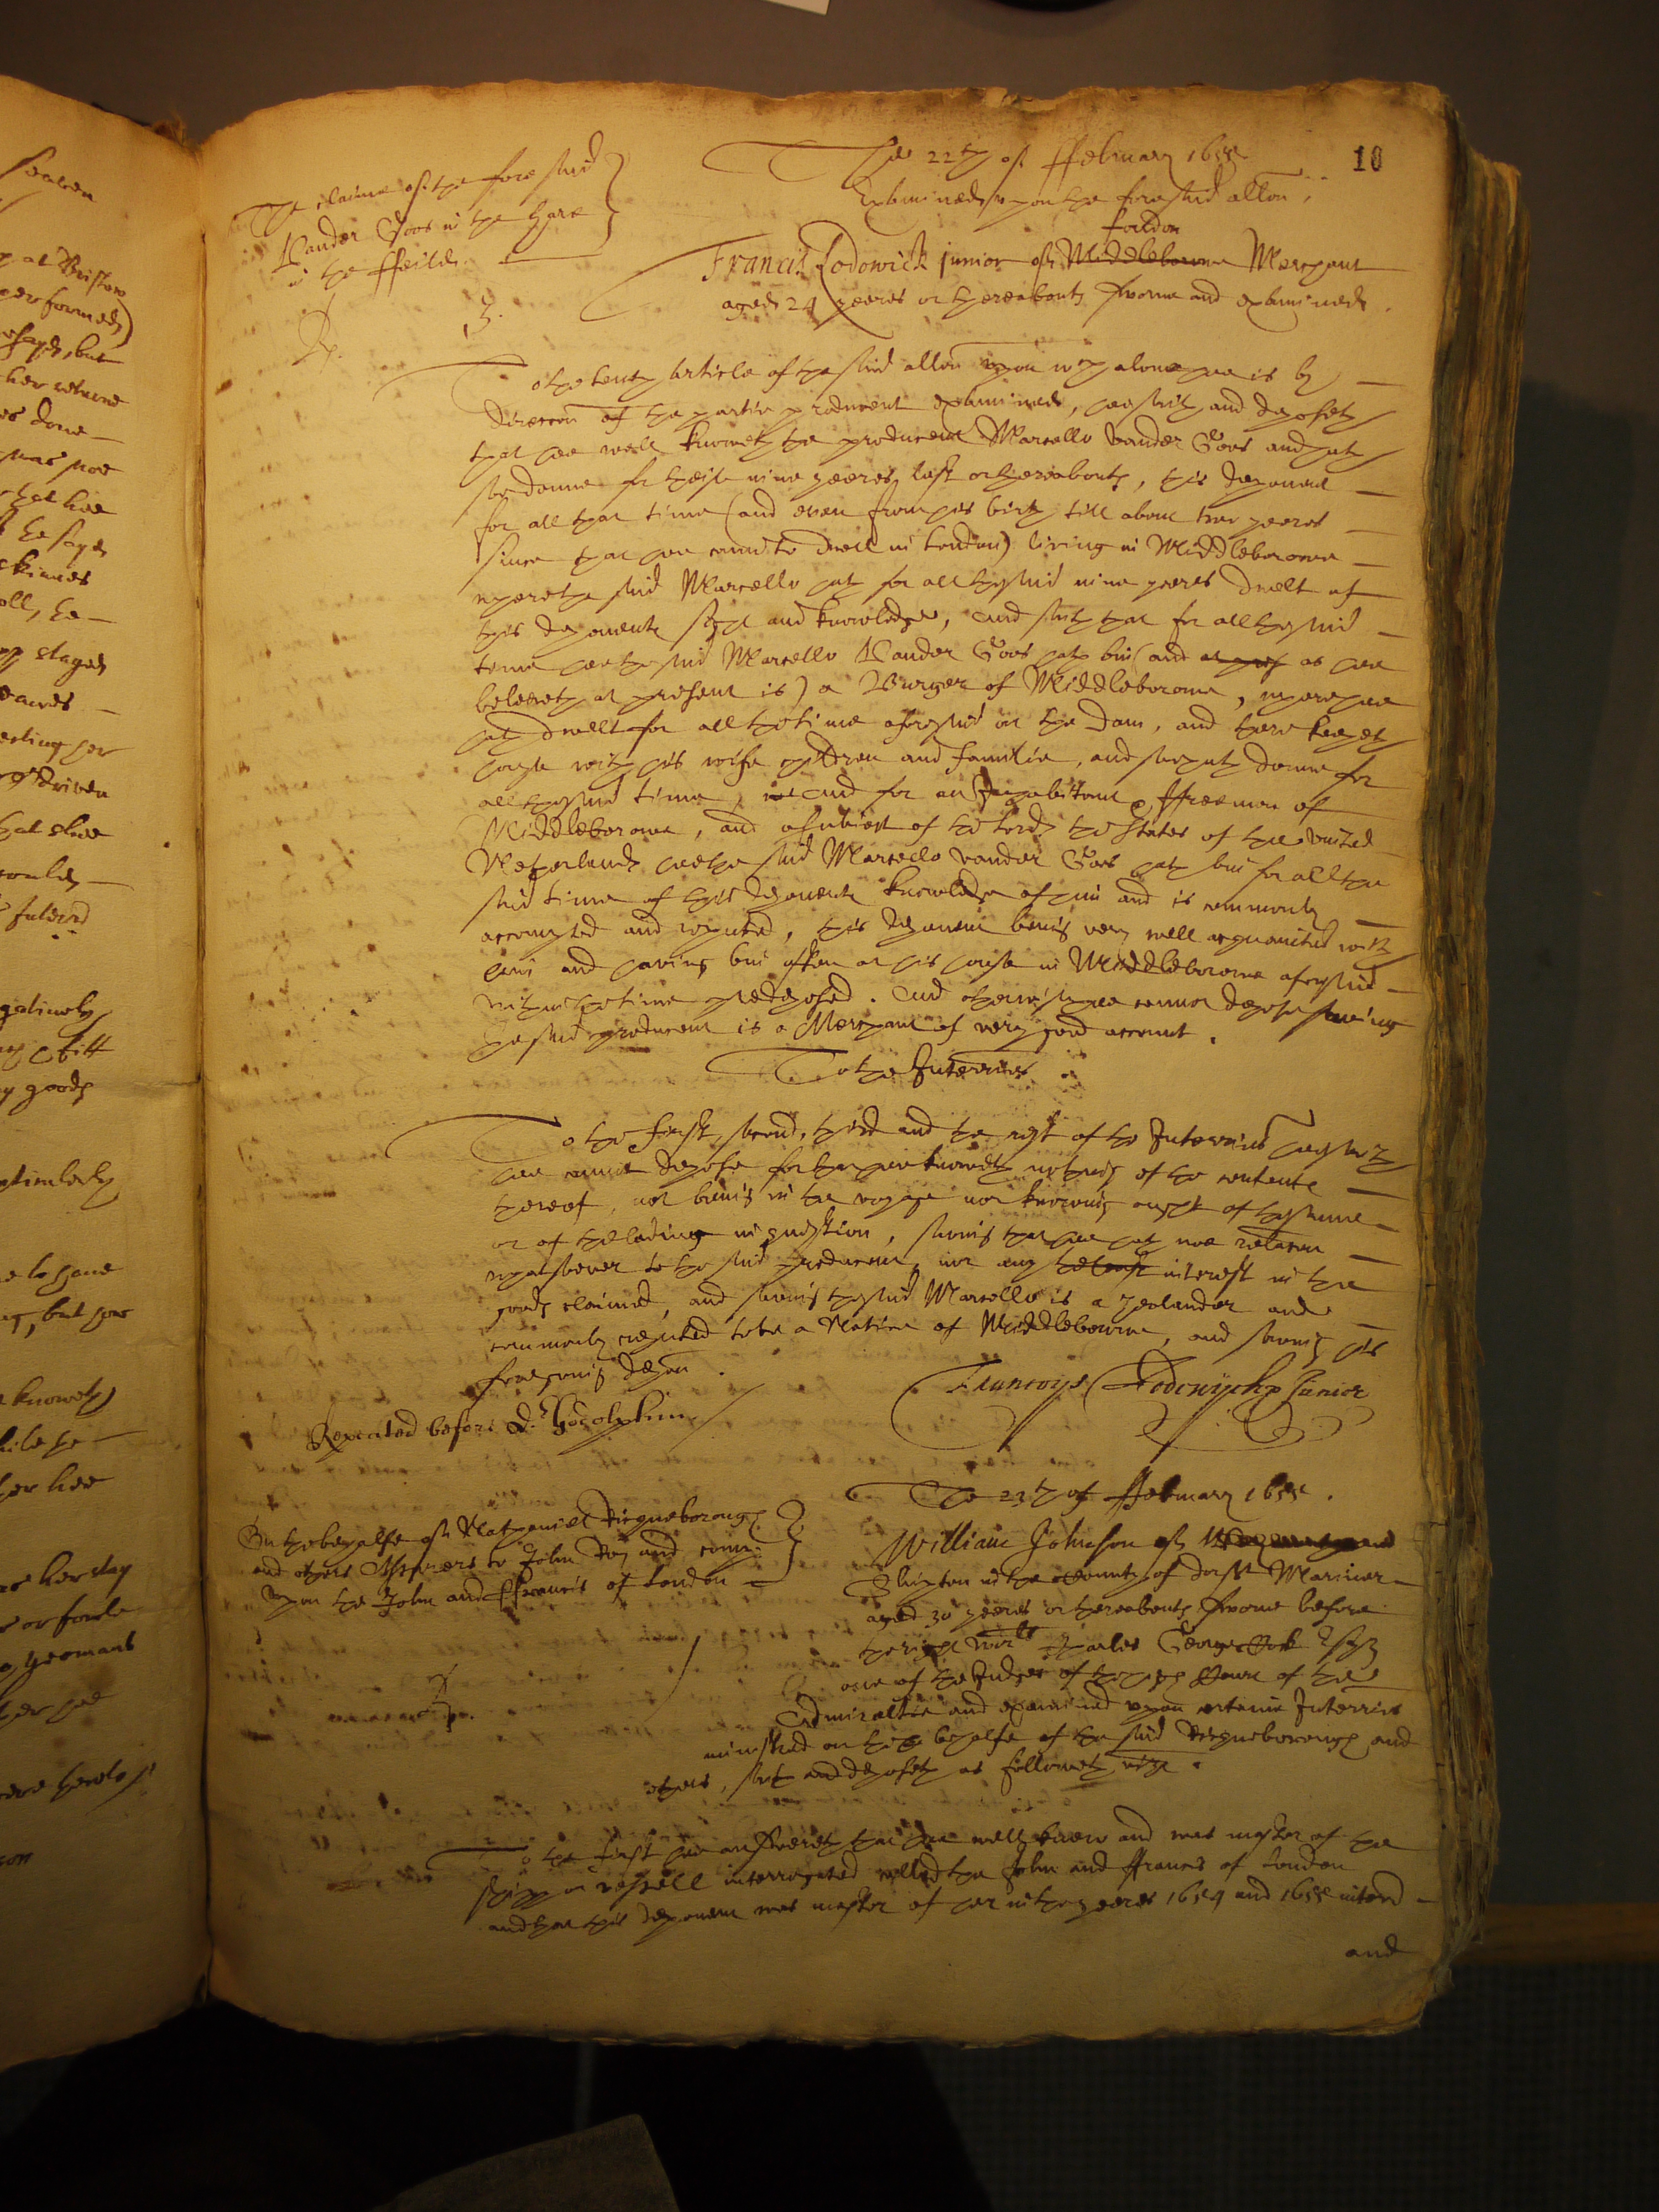 10
The 22th of ffebruary 1655
Examined upon the foresaid allon
The claime of the foresaid
Vander Goos in the Hare
in the ffeilde
London
Francis Lodowick junior of Middleborowe Merchant
aged 24 yeeres or thereabouts sworne and examined
3.
To the tenth article of the said allon upon which alone hee is by
direccon of the partie producent examined, hee saith and deposeth
that hee well knoweth the producent Marcello Vander Goos and hath
soe donne for theise nine yeeres last or thereabouts, this deponent
for all that time (and even from his birth till about two yeeres
since that hee came to dwell in London) living in Middleborowe
where the said Marcello hath for all the said nine yeeres dwelt of
this deponents sight and knowledge, And saith that for all the said
time hee the said Marcello Vander Goos hath bin (and at pres as hee
beleeveth at present is) a Burger of Middleborowe, where hee
hath dwelt for all the time aforesaid on the Dam, and there keepeth
house with his wife children and familie, and soe hath donne for
all the said time, and for an Inhabitant, ffreeman of
Middleborowe, and a subiect of the Lords the States of the United
Netherlands hee the said Marcello vander Goos hath bin for all the
said time of this deponents knowledge of him and is commonly
accompted and reputed, this deponent being very well acquainted with
him and having bin often at his house in Middleborowe aforesaid
within the time predeposed. And otherwise hee cannot depose saving
the said producent is a Merchant of very good accompt.
To the Interries
To the first, second, third and the rest of the Interries hee saith
hee cannot depose for that hee knoweth nothing of the contents
thereof, not being in the voyage nor knowing ought of the same
or of the lading in question, saving that hee hath noe relation
whatsoever to the said producent, nor any the least interest in the
goods claimed, and saving the said Marcello is a Zealander and
commonly reputed to be a Native of Middleborowe, and saving his
foregoing depon.
Repeated before Dr Godolphin
Francoys Lodowyckx Junior
The 23th of ffebruary 1655.
On the behalfe of Nathaniel
and others to John and comp:
upon the John and ffrancis of London
William Johnson of
Shipton in the County of Mariner
aged 30 yeeres or thereabouts sworne before
the right worll Charles George Cock Esqr
one of the Judges of the high Court of the
Admiraltie and examined upon certaine Interries
ministred on the behalfe of the said and
others, saith and deposeth as followeth vizt.
To the first hee answereth that hee well knew and was master of the
shipp or vessell interrogated called the John and ffrancis of London
and that this deponent was master of her in the yeeres 1654 and 1655 interred
and